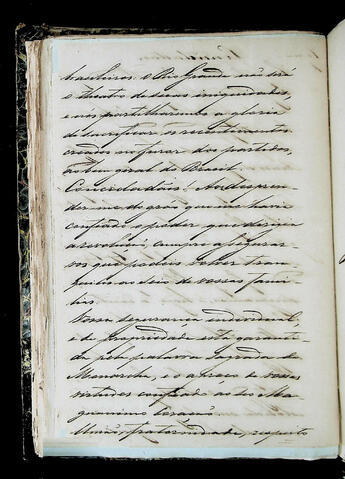 brasileiros. o Rio Grande não será
o theatro de suas iniquidades,
e nós partilharemos a gloria
de sacrificar os resentimentos
creados no furor dos partidos,
ao bem geral do Brasil.
Concidadãos! Ao desprender-
me do gráo que me havia
confiado o poder que dirigia
a revolução, cumpre assegurar-
vos que podeis volver tran-
quillos ao seio de vossas famí-
lias.
Vossa segurança individual,
e de propriedade está garanti-
da pela palavra sagrada do
Monarcha, e o apreço de vossas
virtudes confiado ao seo Ma-
gnanimo Coração.
União, fraternidade, respeito